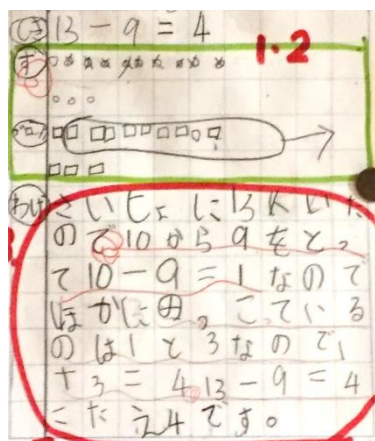 しき 13-9=4
ず
1・2
ブロック
わけ さいしょに13にんいた
ので10から9をとっ
て10-9=1なので
ほかにのこっている
のは1と3なので1
+3=4 13-9=4
こたえ4です。